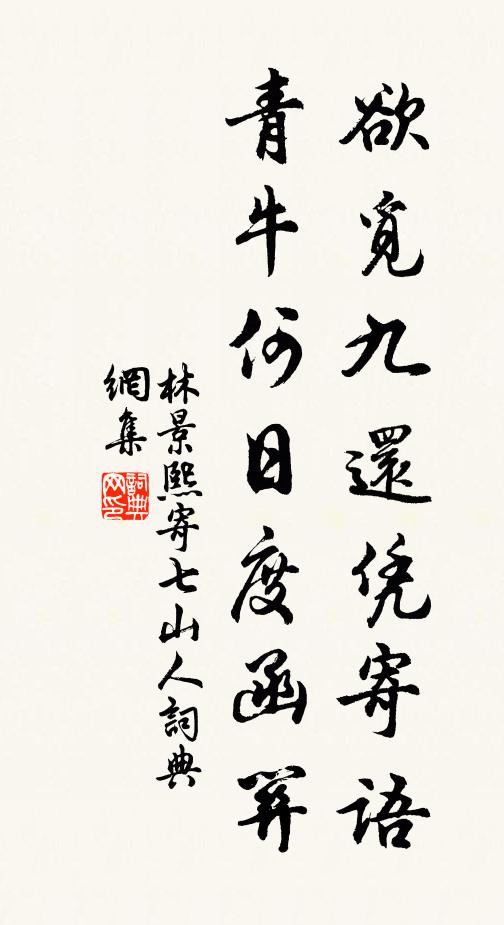 欲覓九還凭寄語
青牛何日度函關
林景熙寄七山人詞典
網集
詞典
网印